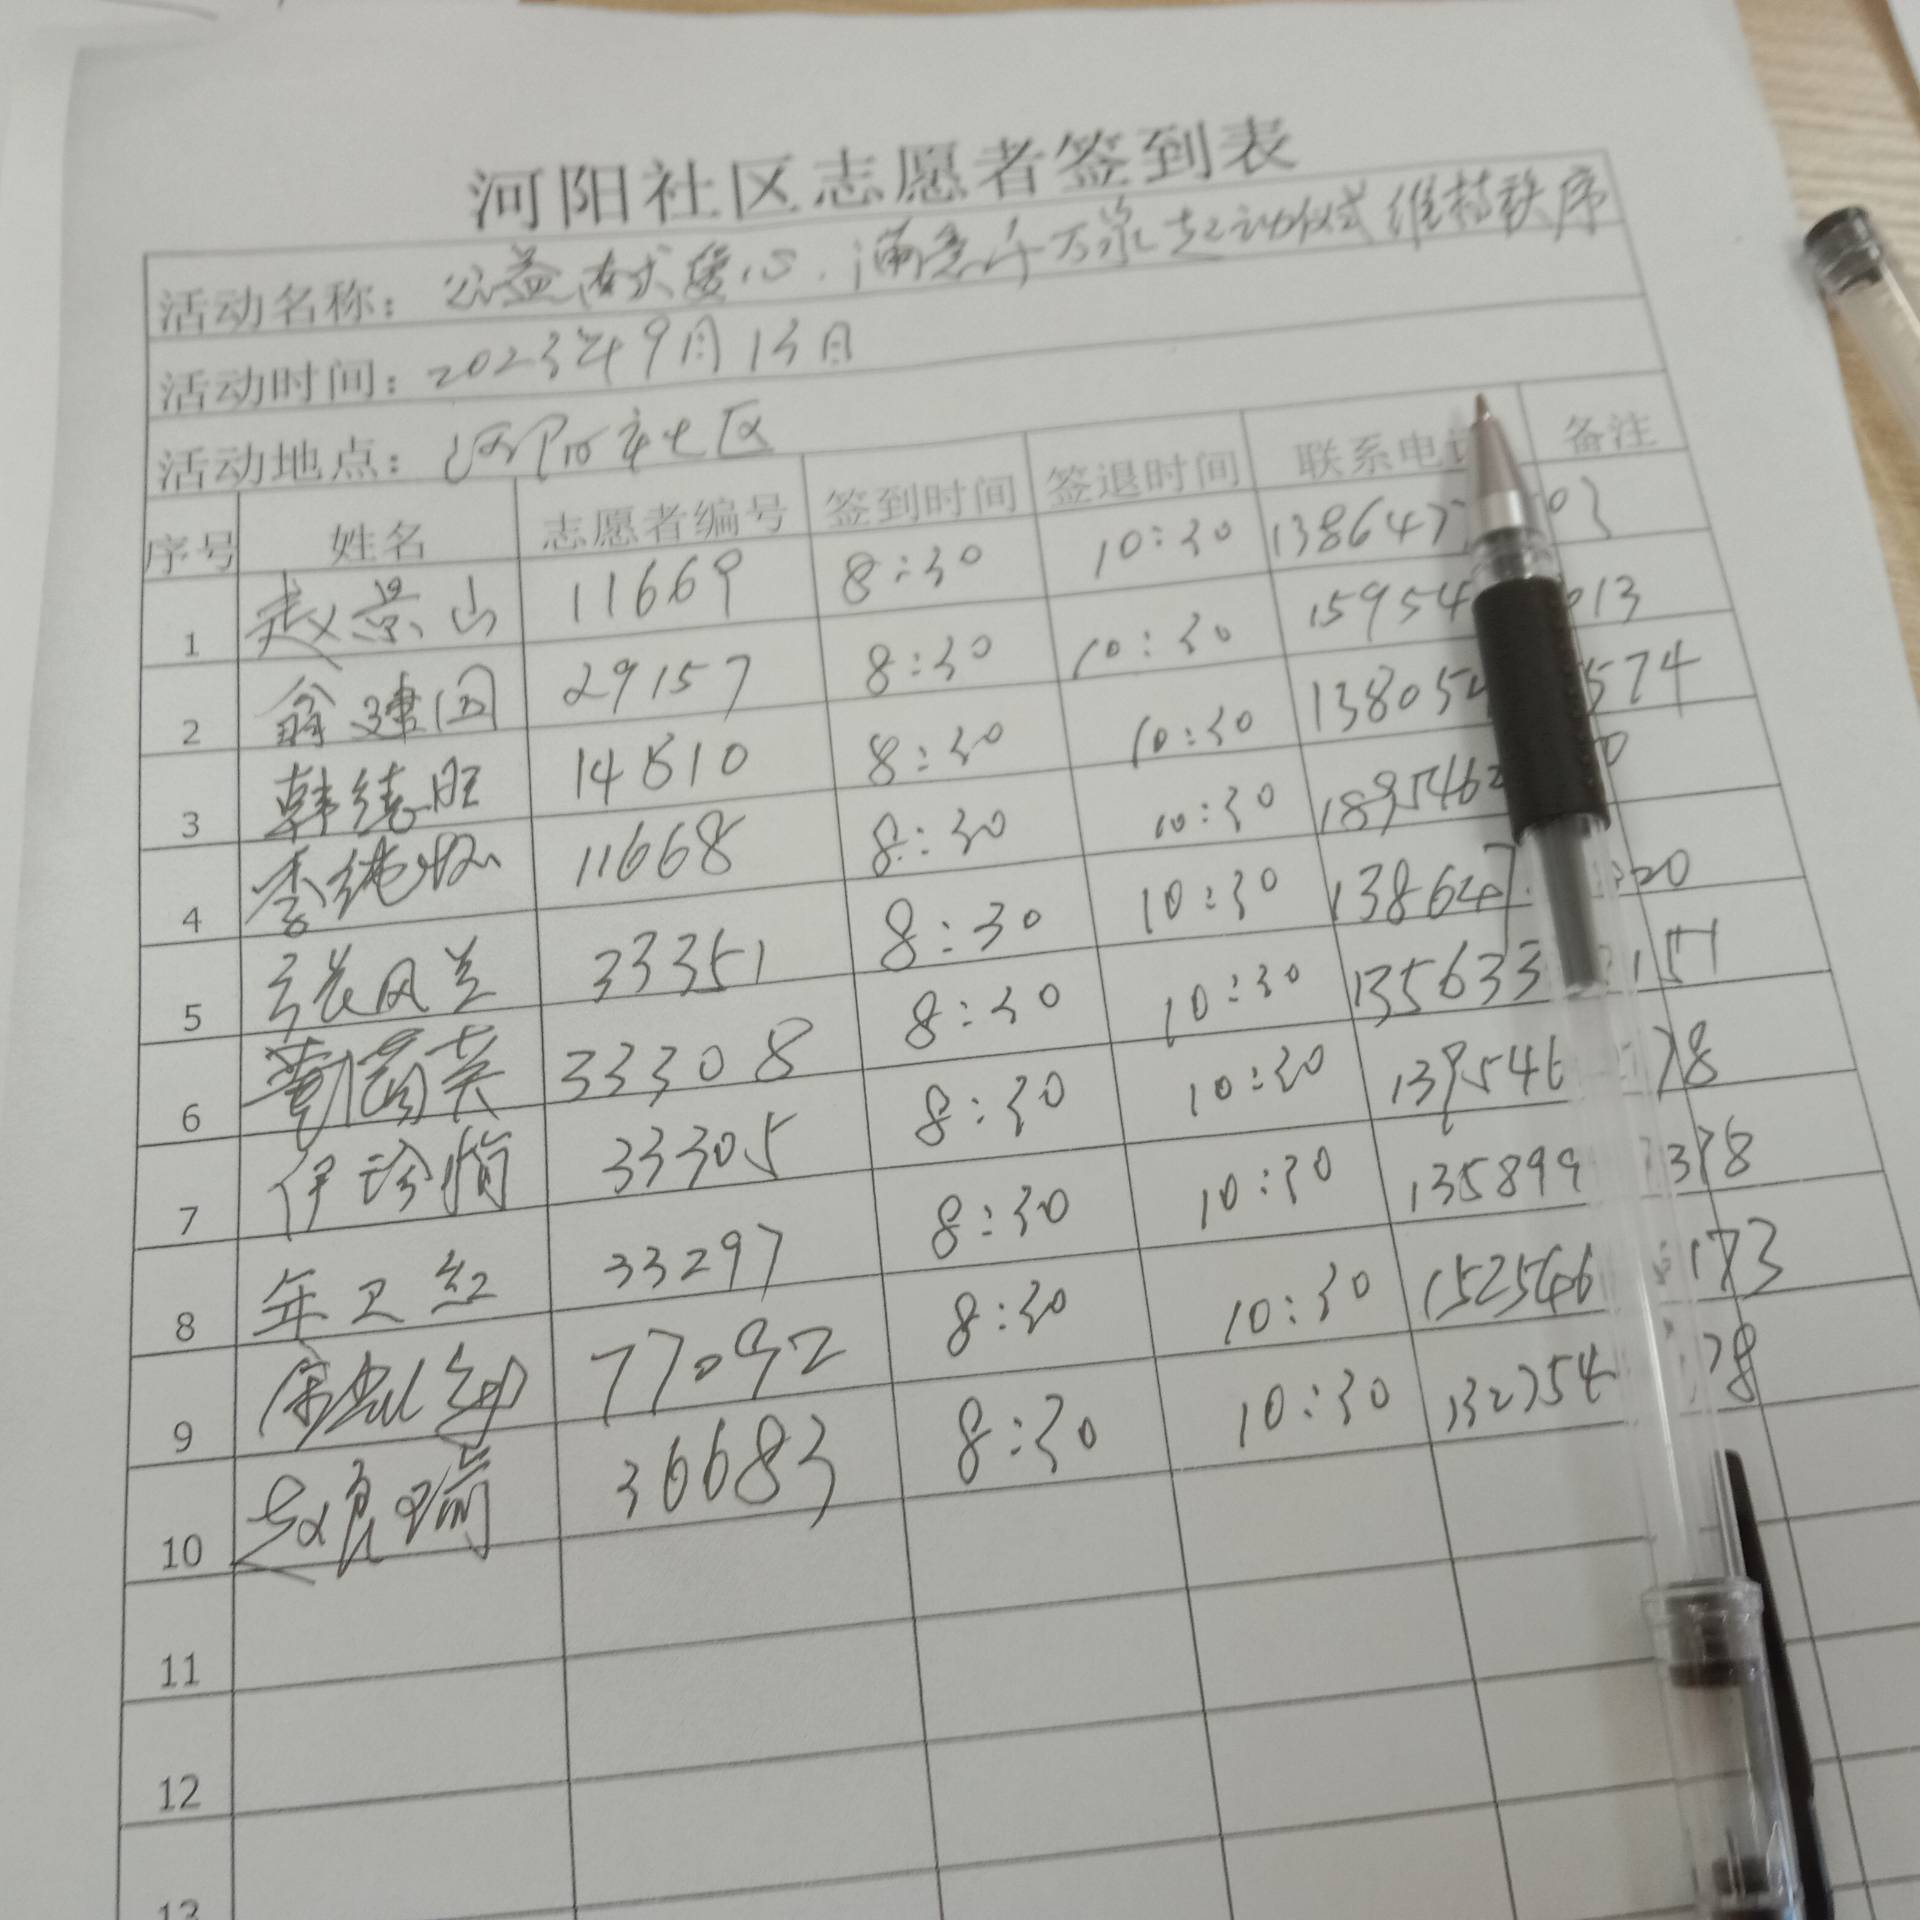 河阳社区志愿者签到表
活动名称：公益献爱心.涌意千万家起动仪式维持秩序
活动时间：2023年9月13日
活动地点：河阳社区
序号 姓名 志愿者编号 签到时间 签退时间 联系电 备注
1 赵景山 11669 8:30 10:30 138647 03
2 翁建国 29157 8:30 10:30 15954 013
3 韩德旺 14810 8:30 10:30 13805 574
4 李 11668 8:30 10:30 1895462 0
5 张风兰 33351 8:30 10:30 138647 20
6 英 33308 8:30 10:30 135633 151
7 伊诊 33305 8:30 10:30 139546 78
8 年卫红 33297 8:30 10:30 135899 378
9 77092 8:30 10:30 152546 173
10 赵 36683 8:30 10:30 132754 78
11
12
13